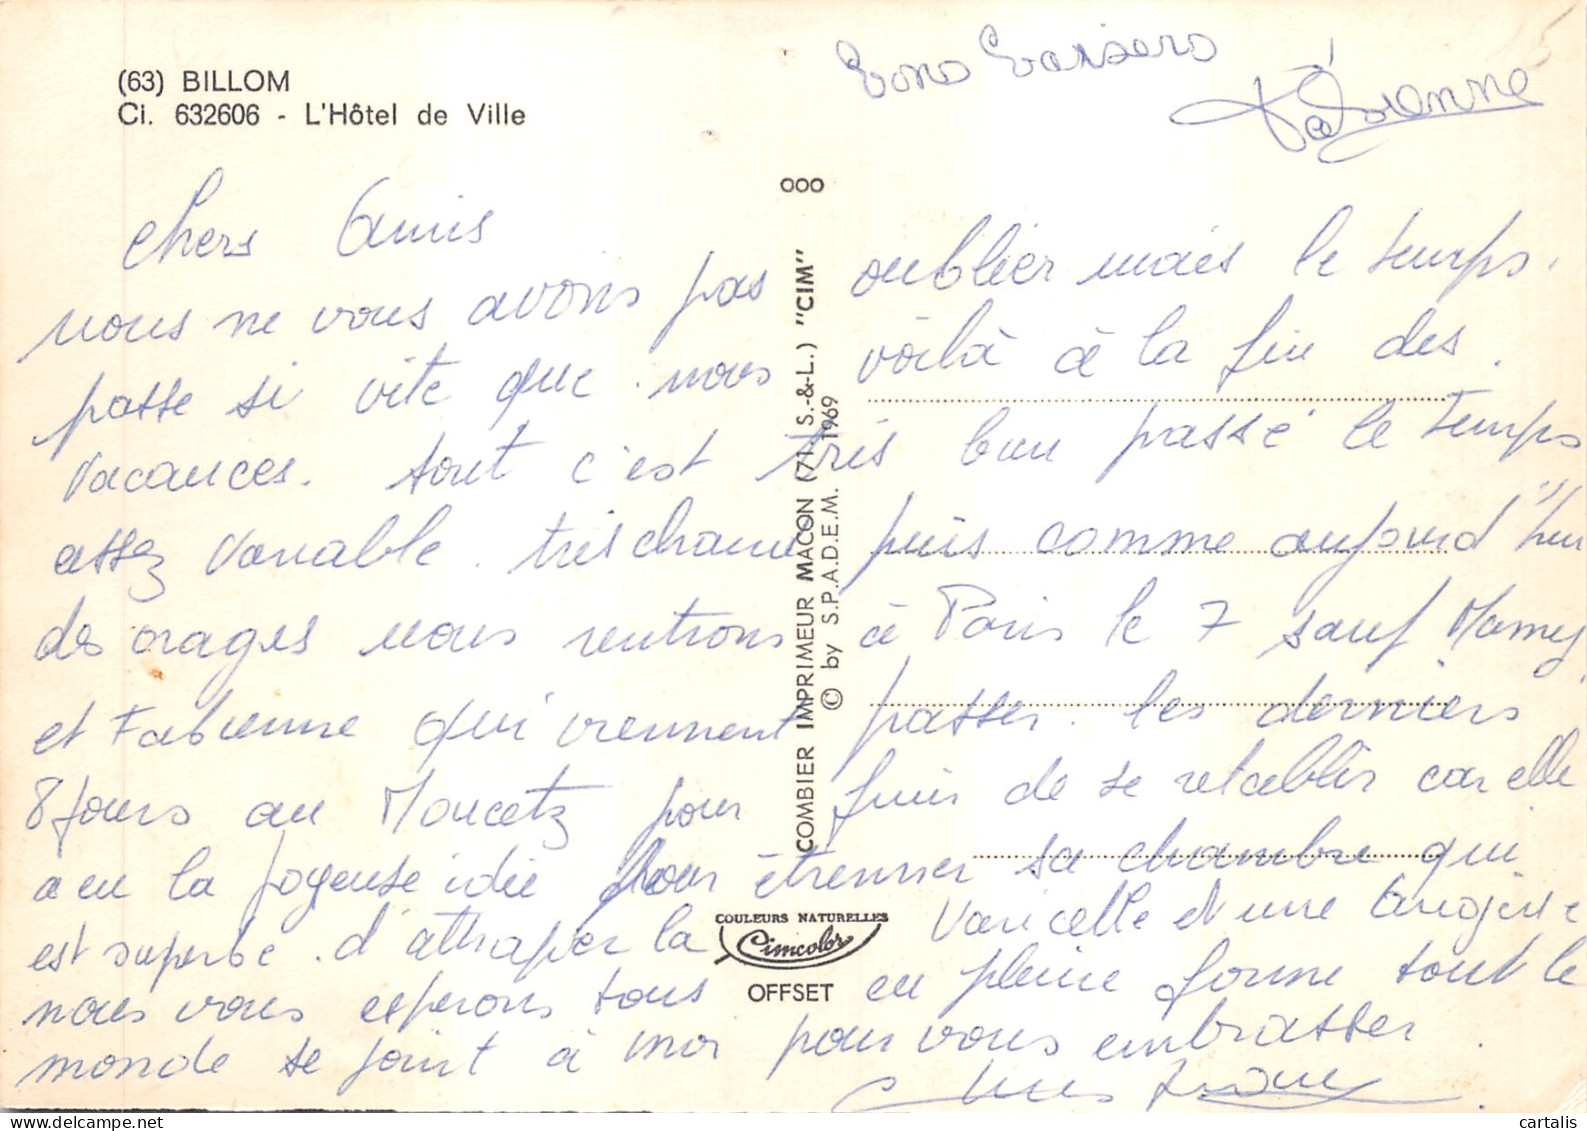 (63) BILLOM
Ci. 632606 - L'Hôtel de Ville
bons baisers
Fabienne
chers Amis
nous ne vous avons pas oublier mais le temps.
passe si vite que nous voilà à la fin des.
vacances. tout c'est très bien passé le temps
assez variable. très chaud puis comme aujourd'hui
des orages nous rentrons à Paris le 7 sauf Mamy
et Fabienne qui viennent passer les derniers
8 jours au Moucetz pour finir de se retablir car elle
a eu la joyeuse idée pour étrenner sa chambre qui
est superbe. d'attraper la varicelle et une angine
nous vous esperons tous en pleine forme tout le
monde se joint à moi pour vous embrasser.
000
COMBIER IMPRIMEUR MACON (71 S.-&-L.) "CIM"
© by S.P.A.D.E.M. 1969
COULEURS NATURELLES
Cimcolor
OFFSET
cartalis